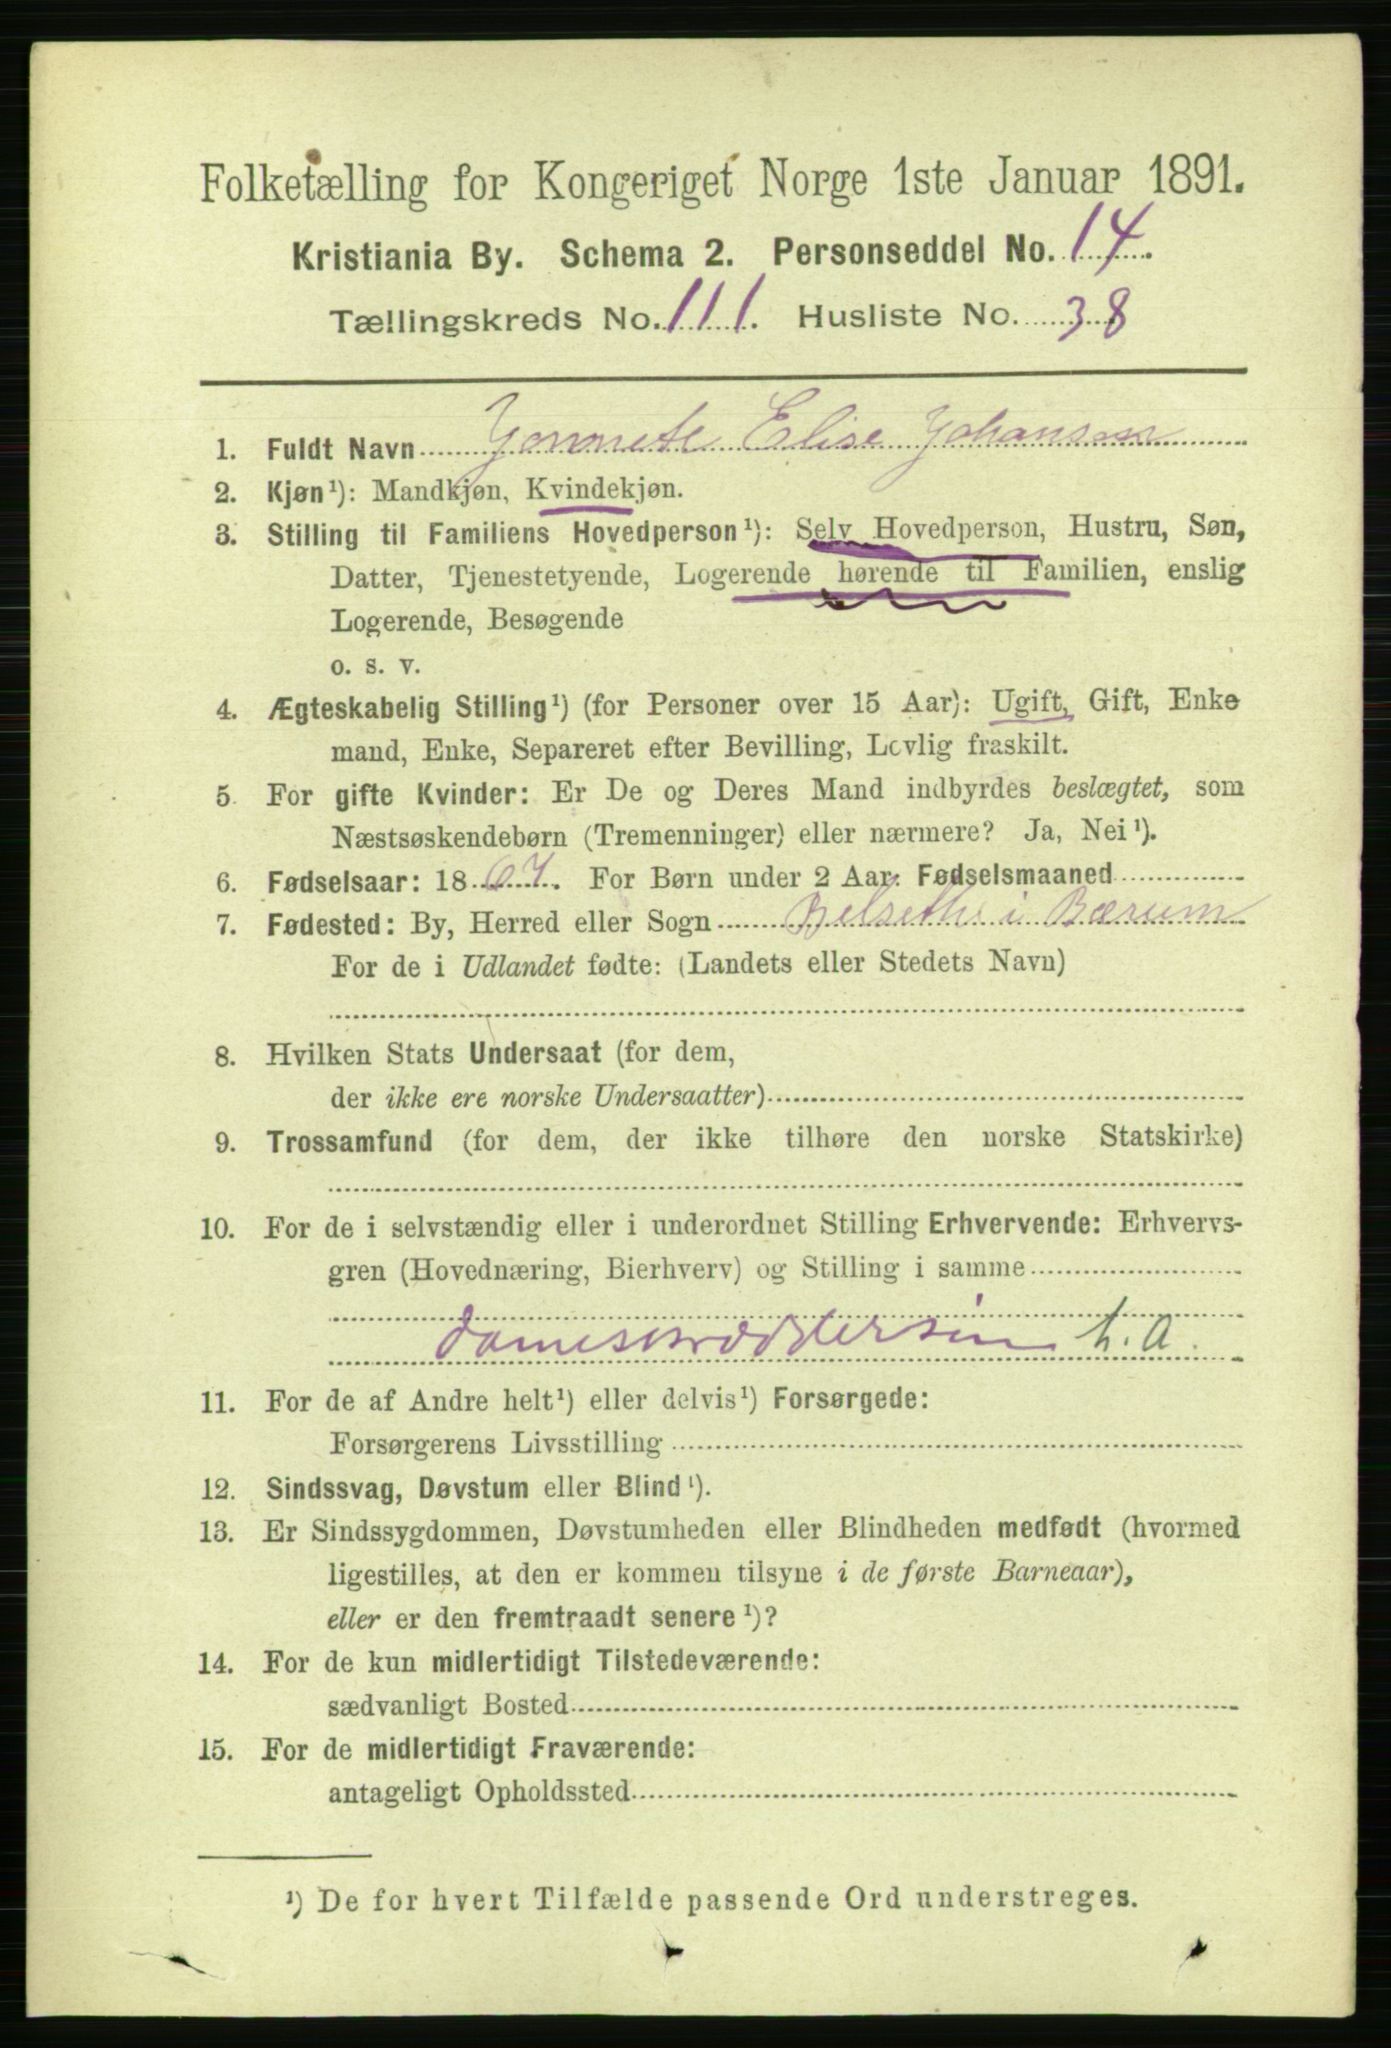 Folketælling for Kongeriget Norge 1ste Januar 1891.
Kristiania By. Schema 2. Personseddel No. 14.
Tællingskreds No. 111. Husliste No. 38
1. Fuldt Navn Elise Johansen
2. Kjøn¹): Mandkjøn, Kvindekjøn.
3. Stilling til Familiens Hovedperson¹): Selv Hovedperson, Hustru, Søn,
Datter, Tjenestetyende, Logerende hørende til Familien, enslig
Logerende, Besøgende
o. s. v.
4. Ægteskabelig Stilling¹) (for Personer over 15 Aar): Ugift, Gift, Enke
mand, Enke, Separeret efter Bevilling, Lovlig fraskilt.
5. For gifte Kvinder: Er De og Deres Mand indbyrdes beslægtet, som
Næstsøskendebørn (Tremenninger) eller nærmere? Ja, Nei¹).
6. Fødselsaar: 1867. For Børn under 2 Aar: Fødselsmaaned
7. Fødested: By, Herred eller Sogn Belseth i Bærum
For de i Udlandet fødte: (Landets eller Stedets Navn)
8. Hvilken Stats Undersaat (for dem,
der ikke ere norske Undersaatter)
9. Trossamfund (for dem, der ikke tilhøre den norske Statskirke)
10. For de i selvstændig eller i underordnet Stilling Erhvervende: Erhvervs-
gren (Hovednæring, Bierhverv) og Stilling i samme
h. a.
11. For de af Andre helt¹) eller delvis¹) Forsørgede:
Forsørgerens Livsstilling
12. Sindssvag, Døvstum eller Blind¹).
13. Er Sindssygdommen, Døvstumheden eller Blindheden medfødt (hvormed
ligestilles, at den er kommen tilsyne i de første Barneaar),
eller er den fremtraadt senere¹)?
14. For de kun midlertidigt Tilstedeværende:
sædvanligt Bosted
15. For de midlertidigt Fraværende:
antageligt Opholdssted
¹) De for hvert Tilfælde passende Ord understreges.